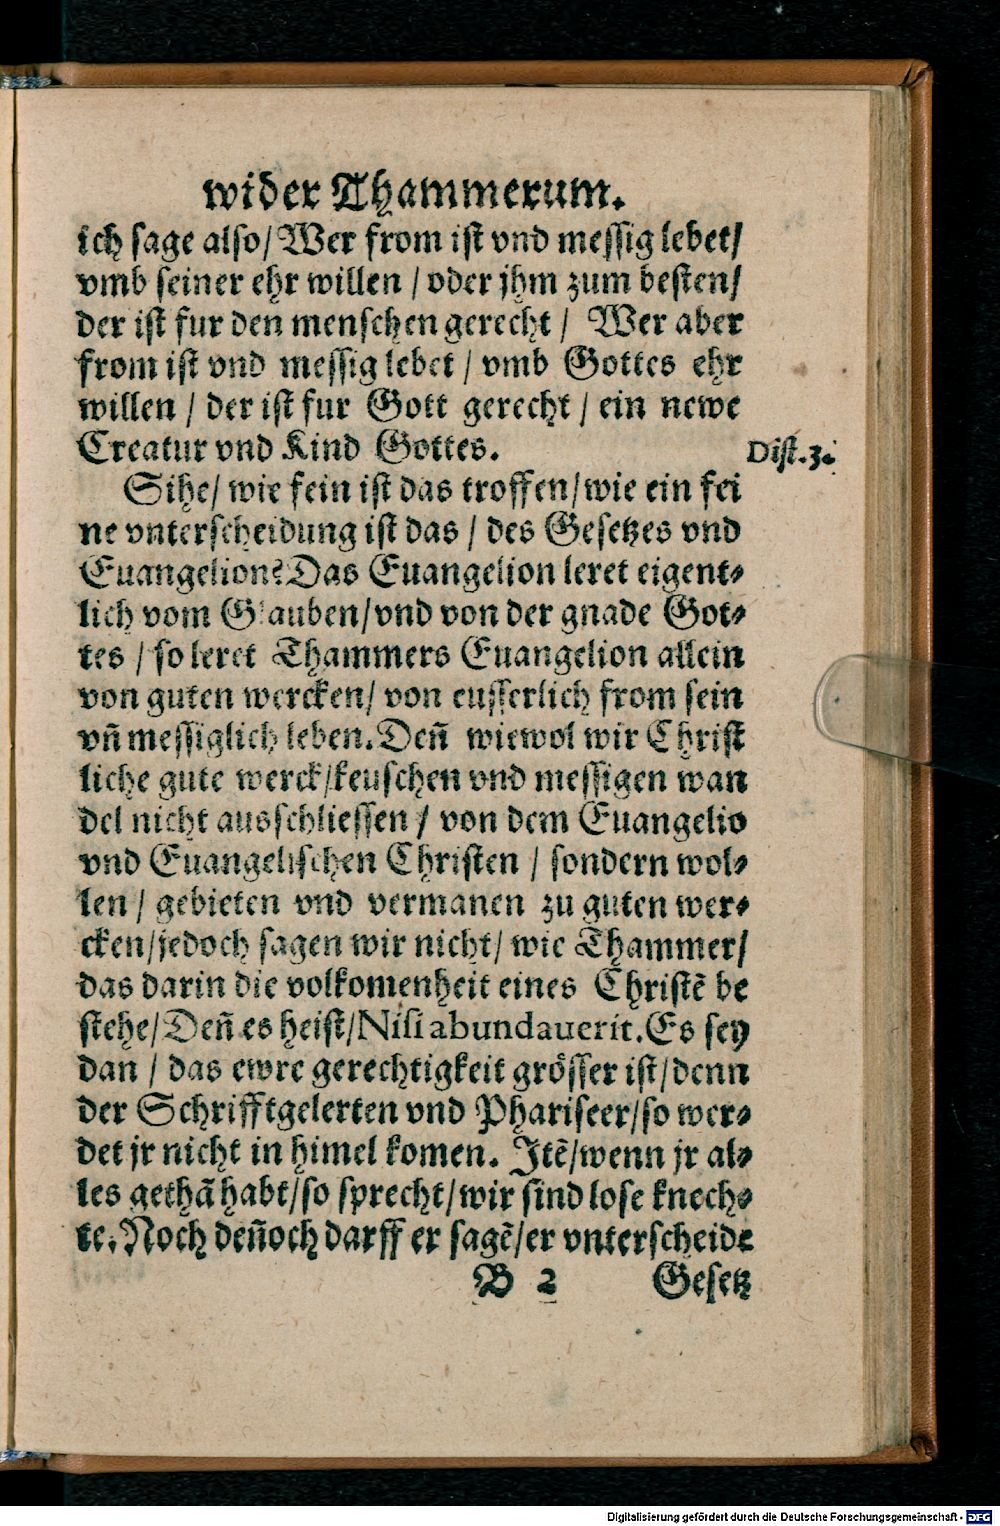 wider Thammerum.
ich sage also/ Wer from ist vnd messig lebet/
vmb seiner ehr willen / oder jhm zum besten/
der ist fur den menschen gerecht / Wer aber
from ist vnd messig lebet / vmb Gottes ehr
willen / der ist fur Gott gerecht / ein newe
Creatur vnd Kind Gottes.
Dist. 3.
Sihe/ wie fein ist das troffen/ wie ein fei
ne vnterscheidung ist das / des Gesetzes vnd
Euangelion? Das Euangelion leret eigent⸗
lich vom Glauben/ vnd von der gnade Got⸗
tes / so leret Thammers Euangelion allein
von guten wercken/ von eusserlich from sein
vñ messiglich leben. Deñ wiewol wir Christ
liche gute werck/ keuschen vnd messigen wan
del nicht ausschliessen / von dem Euangelio
vnd Euangelischen Christen / sondern wol⸗
len / gebieten vnd vermanen zu guten wer⸗
cken/ jedoch sagen wir nicht/ wie Thammer/
das darin die volkomenheit eines Christẽ be
stehe/ Deñ es heist/ Nisi abundauerit. Es sey
dan / das ewre gerechtigkeit grösser ist/ denn
der Schrifftgelerten vnd Phariseer/ so wer⸗
det jr nicht in himel komen. Itẽ/ wenn jr al⸗
les gethã habt/ so sprecht/ wir sind lose knech⸗
te. Noch deñoch darff er sagẽ/ er vnterscheide
B 2 Gesetz
Digitalisierung gefördert durch die Deutsche Forschungsgemeinschaft - DFG